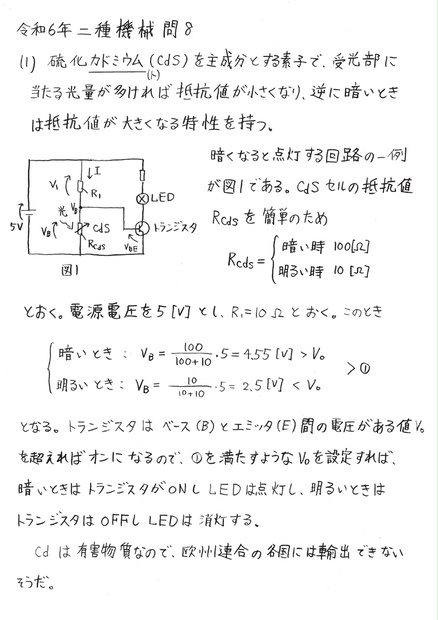 令和6年二種機械問8
(1) 硫化カドミウム(CdS)を主成分とする素子で、受光部に
(ト)
当たる光量が多ければ抵抗値が小さくなり、逆に暗いとき
は抵抗値が大きくなる特性を持つ。
暗くなると点灯する回路の一例
が図1である。CdSセルの抵抗値
Rcdsを簡単のため
Rcds = { 暗い時 100[Ω]
明るい時 10[Ω]
↓I
V₁
R₁
LED
光
VB
CdS
Rcds
トランジスタ
VB
VBE
5V
図1
とおく。電源電圧を5[V]とし、R₁=10Ωとおく。このとき
暗いとき: VB = 100/(100+10)・5 = 4.55[V] > V₀
明るいとき: VB = 10/(10+10)・5 = 2.5[V] < V₀
>①
となる。トランジスタはベース(B)とエミッタ(E)間の電圧がある値V₀
を超えればオンになるので、①を満たすようなV₀を設定すれば、
暗いときはトランジスタがONしLEDは点灯し、明るいときは
トランジスタはOFFしLEDは消灯する。
Cdは有害物質なので、欧州連合の各国には輸出できない
そうだ。